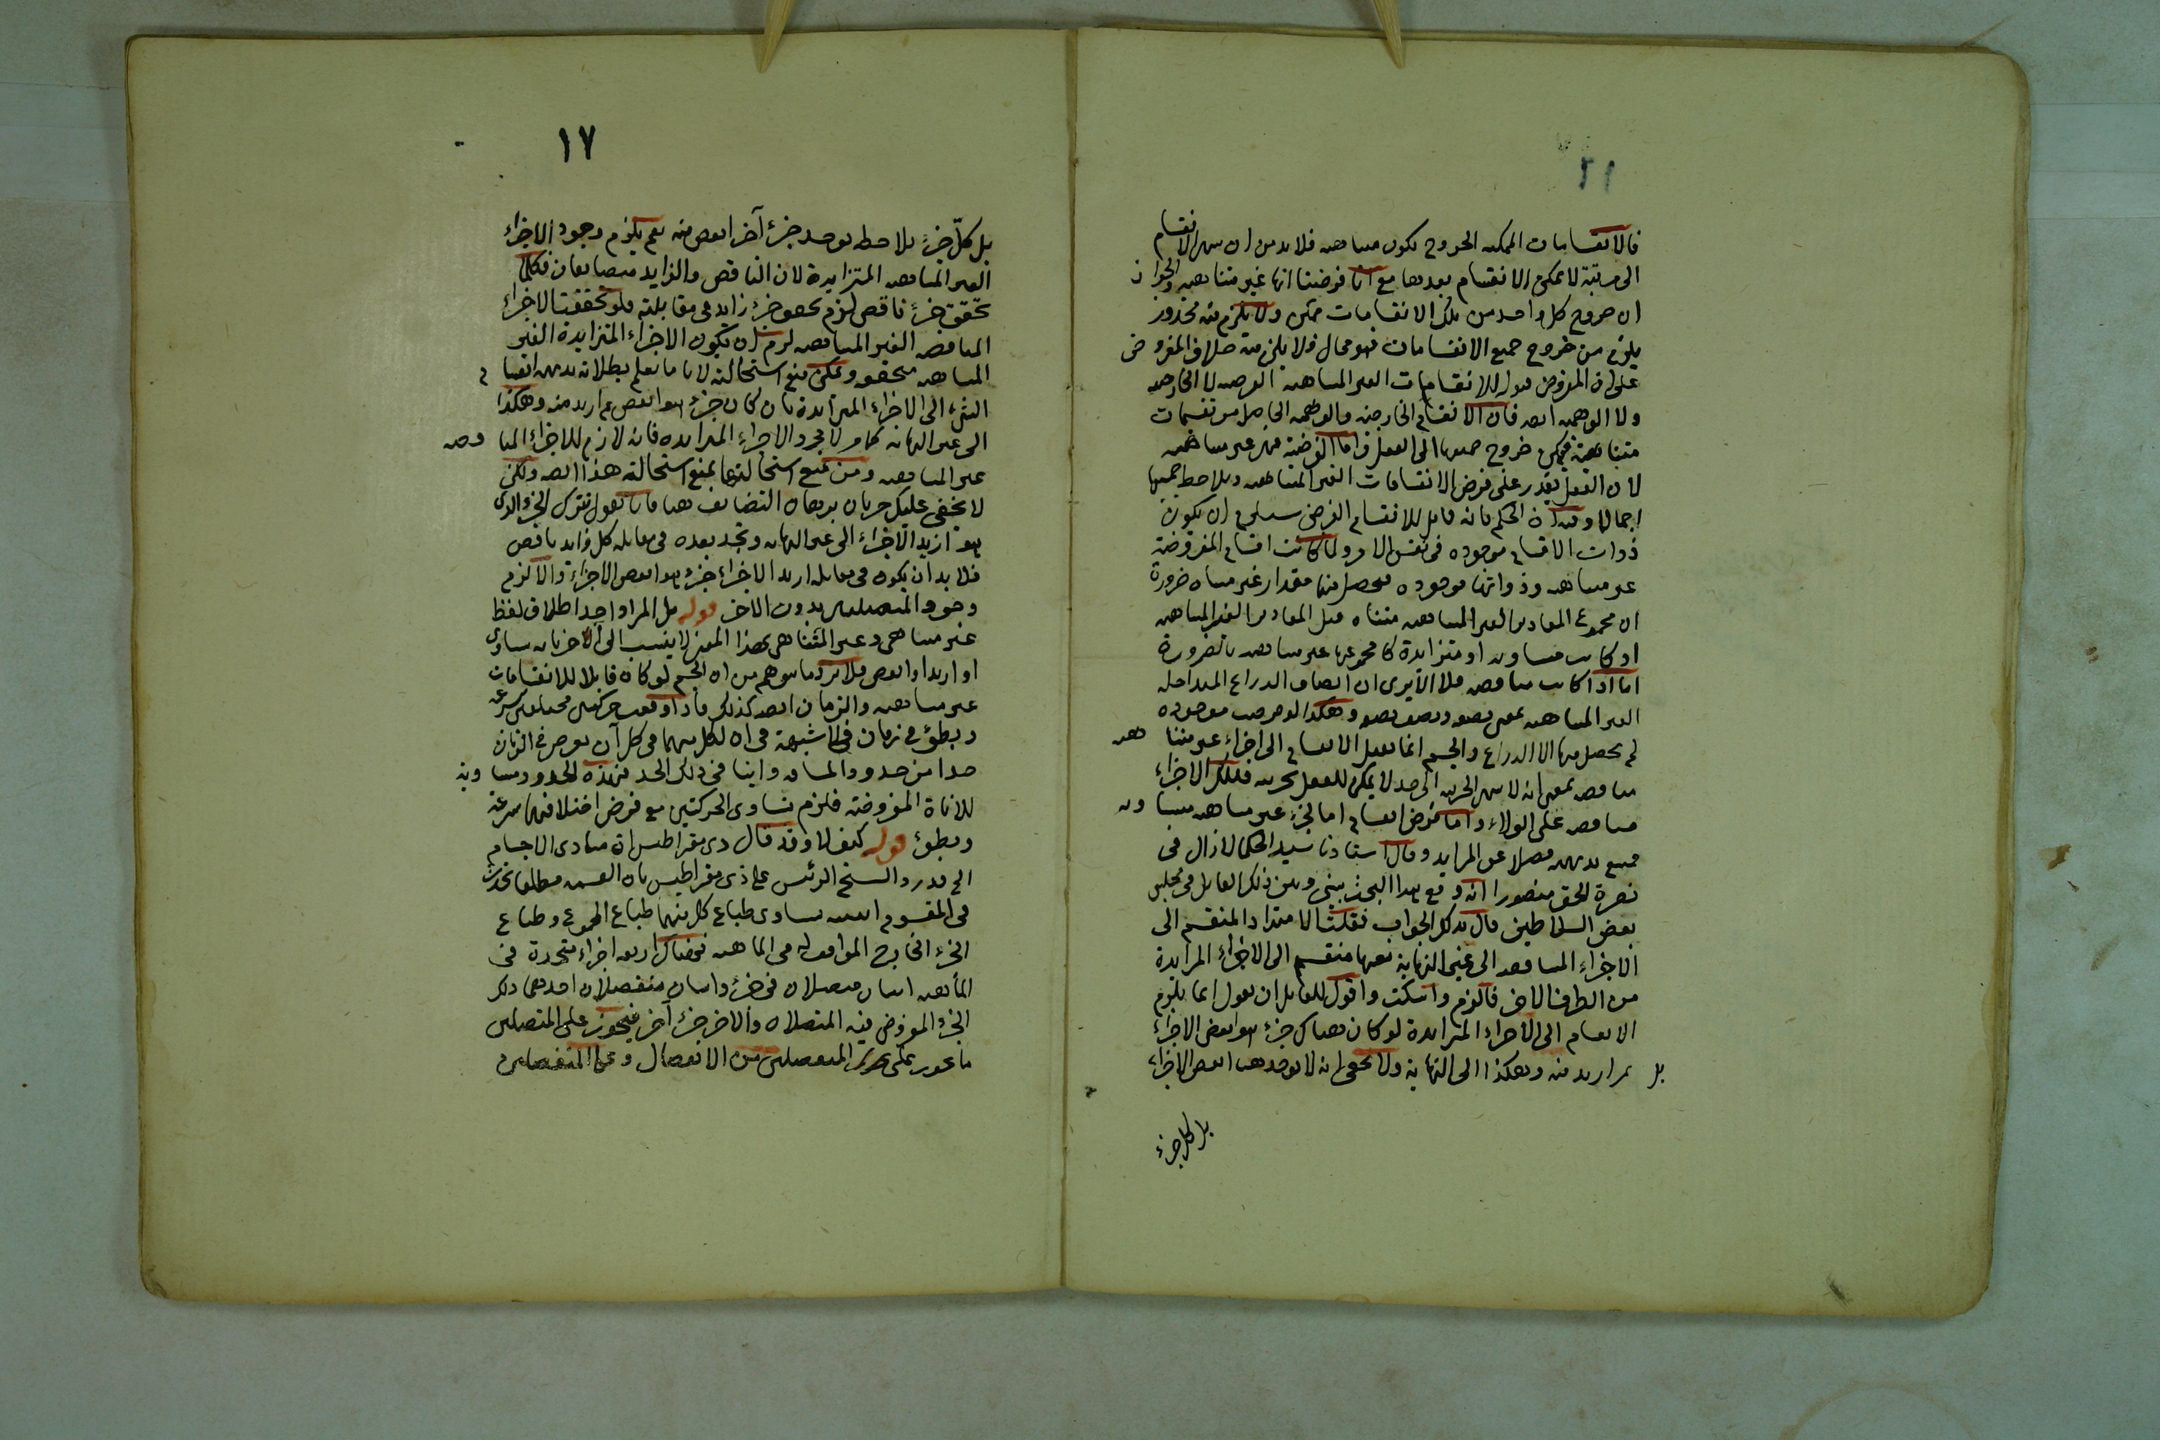 فالانقسامات الممكنة الخروج تكون متناهية فلا بد من ان ينتهى الانقسام
الى مرتبة لا يمكن الانقسام بعدها مع انا فرضنا انها غير متناهية والجواب
ان خروج كل واحد من تلك الانقسامات ممكن ولا يلزم منه محذور
يلزم من خروج جميع الانقسامات فهو محال ولا يلزم منه خلاف المفروض
على ان المفروض قبول الانقسامات الغير المتناهية الفرضية لا الخارجية
ولا الوهمية ايضا فان الانقسام الخارجية والوهمية
متناهية فيمكن خروج جميعها الى الفعل واما الفرضية فهى غير متناهية
لان العقل يقدر على فرض الانقسامات الغير المتناهية ويلاحظ جميعها
اجمالا وقيه ان الحكم بانه قابل للانقسام الفرضى يستلزم ان يكون
ذوات الاقسام موجودة فى نفس الامر ولما كانت اقسام المفروضة
غير متناهية وذواتها موجودة فحصل منها مقدار غير متناه ضرورة
ان مجموع المقادير الغير المتناهية متناه قيل المقادير الغير المتناهية
اذا كانت متساوية او متزايدة كا مجموعها غير متناهية بالضرورة
اما اذا كانت متناقصة فلا الا يرى ان انصاف الذراع المتداخلة
الغير المتناهية بمعنى نصفه ونصف نصفه وهكذا لو فرضت موجودة
لم يحصل منها الا الذراع والجسم انما يقبل الانقسام الى اجزاء غير متناهية
متناقصة بمعنى انه لا ينتهى التجزية الى حد لا يمكن للعقل تجزيته فتلك الاجزاء
متناقصة على الولاء واما فرض انقسام اما لجزء غير متناهية متساوية
فممنوع بديهية فضلا عن المتزايد وقال استاذنا سيد الحكما لا زال فى
نصرة الحق منصورا انه وقع هذا البحث بينى وبين ذلك القايل فى مجلس
بعض السلاطين قال بذلك الجواب فقلت الامتداد المنقسم الى
الاجزاء المتناقصة الى غير النهاية بعينها منقسم الى الاجزاء المتزايدة
من الطرف الاخر فالزم واسكت واقول للقايل ان يقول انما يلزم
الانقسام الى الاجزاء المتزايدة لو كان هناك جزء هو انقص الاجزاء
بل ثم ازيد منه وهكذا الى النهاية ولا يخفى انه لا يوجد هنا انقص الاجزاء
بل كل جزء
١٧
بل كلّ جزء يلاحظ يوجد جزء آخر انقص منه نعم يلزم وجود الاجزاء
الغير المتناهية المتزايدة لان الناقص والزايد متضايفان فكلما
تحقق جزء ناقص لزم تحقق جزء زايد فى مقابلته فلو تحققت الاجزاء
المتناقصة الغير المتناهية لزم ان يكون الاجزاء المتزايدة الغير
المتناهية متحققة ويمكن منع استحالته لانا ما نعلم بطلانه بديهة انقسام
الشئ الى الاجزاء المتزايدة بان كان جزء هو انقص ثم ازيد منه وهكذا
الى غير النهاية كما مر لا مجرد الاجزاء المتزايدة فانه لازم للاجزاء المتناقصة
غير المتناهية ومن منع استحالتها يمنع استحالة هذا ايضا ولكن
لا يخفى عليك جريان برهان التضايف هنا فانا نقول نترك الجزء الذى
هو ازيد الاجزاء الى غير النهاية ونجد بعده فى مقابلة كل زايد ناقص
فلا بد ان يكون فى مقابلة ازيد الاجزاء جزء هو انقص الاجزاء والا لزم
وجود المتضايفين بدون الاخر قوله بل المراد احد اطلاق لفظ
غير متناهى وغير المتناهى بهذا المعنى لا ينسب الى الآخر بانه يساوى
او ازيد او انقص فلا يرد ما يتوهم من ان الجسم لو كان قابلا للانقسامات
غير متناهية والزمان ايضا كذلك فاذا وقعت حركتين مختلفتين سرعة
وبطؤ فى زمان فلا شبهة فى ان لكل منهما فى كل آن يفرض فى الزمان
حدا من حدود المسافة واينا فى ذلك الحد فهذه الحدود مساوية
للآنات المفروضة فلزم تساوى الحركتين مع فرض اختلافهما سرعة
وبطؤ قوله كيف لا وقد قال ذى مقراطيس ان مبادى الاجسام
الخ قد رد الشيخ الرئيس على ذى مقراطيس بان القسمة مطلقا تحدث
فى المقسوم اثنينية يساوى طباع كل منهما طباع المجموع وطباع
الجزء الخارج الموافق له فى الماهية فهناك اربعة اجزاء متحدة فى
الماهية اثنان متصلان فى جزء واثنان منفصلان احدهما ذلك
الجزء المفروض فيه المتصلان والاخر جزء آخر فيجوز على المتصلين
ما يجوز على المنفصلين من الانفصال وعلى المنفصلين